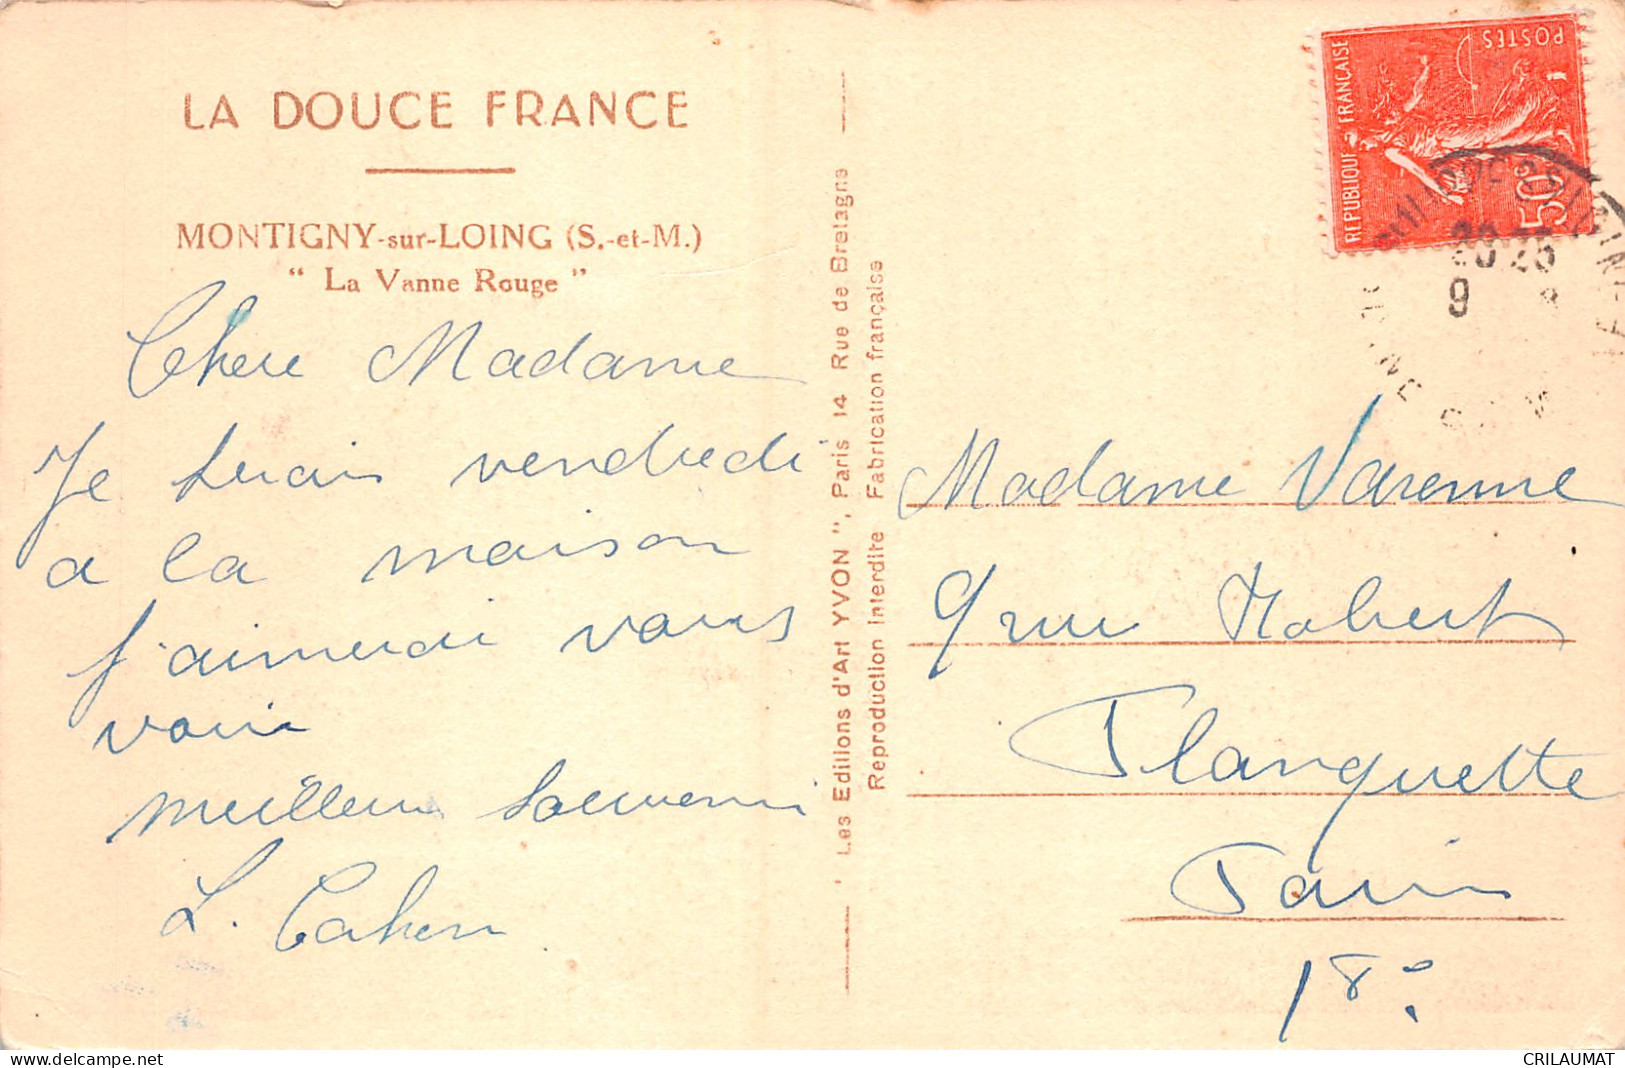 LA DOUCE FRANCE
MONTIGNY-sur-LOING (S.-et-M.)
" La Vanne Rouge "
Chere Madame
Je serais vendredi
a la maison
j'aimerai vous
voir
meilleurs souvenirs
L. Cahen
Les Editions d'Art YVON", Paris 14 Rue de Bretagne
Reproduction Interdite Fabrication française
REPUBLIQUE FRANÇAISE
POSTES
50c
20 25
9
Madame Varenne
9 rue Robert
Planquette
Paris
18e
CRILAUMAT